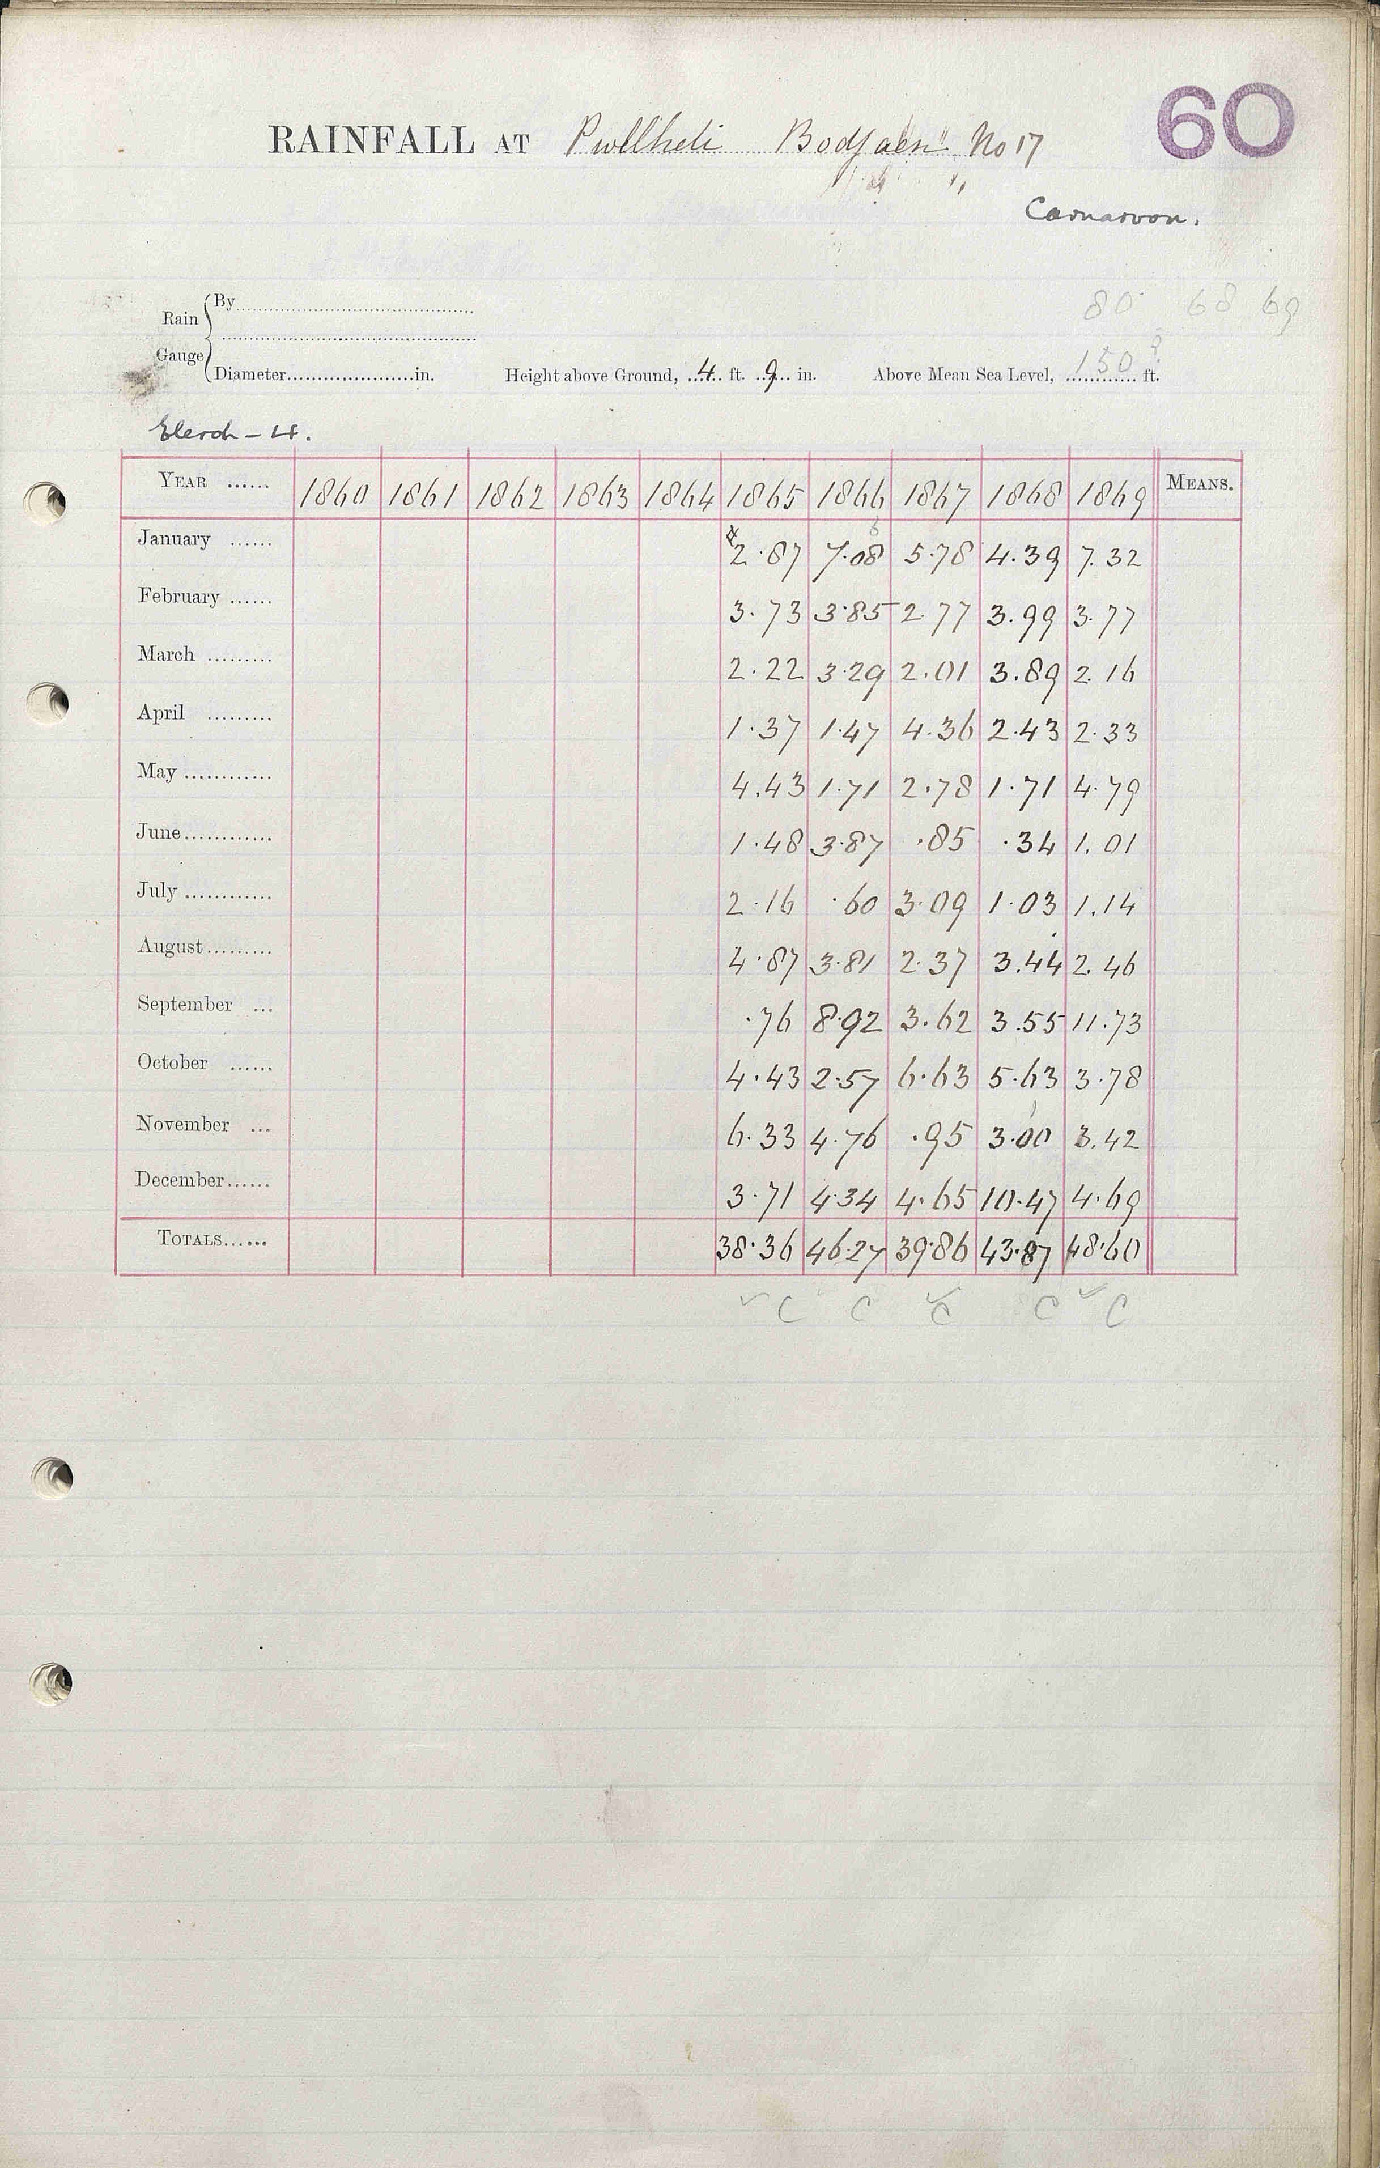 60
RAINFALL AT Pwllheli No 17
Carnarvon.
80 68 69
Rain Gauge { By
Diameter in. Height above Ground, 4 ft. 9 in. Above Mean Sea Level, 150? ft.
YEAR 1860 1861 1862 1863 1864 1865 1866 1867 1868 1869 MEANS.
January 2.87 7.08 5.78 4.39 7.32
February 3.73 3.85 2.77 3.99 3.77
March 2.22 3.29 2.01 3.89 2.16
April 1.37 1.47 4.36 2.43 2.33
May 4.43 1.71 2.78 1.71 4.79
June 1.48 3.87 .85 .34 1.01
July 2.16 .60 3.09 1.03 1.14
August 4.87 3.81 2.37 3.44 2.46
September .76 8.92 3.62 3.55 11.73
October 4.43 2.57 6.63 5.63 3.78
November 6.33 4.76 .95 3.00 3.42
December 3.71 4.34 4.65 10.47 4.69
TOTALS 38.36 46.27 39.86 43.87 48.60
C C C C C